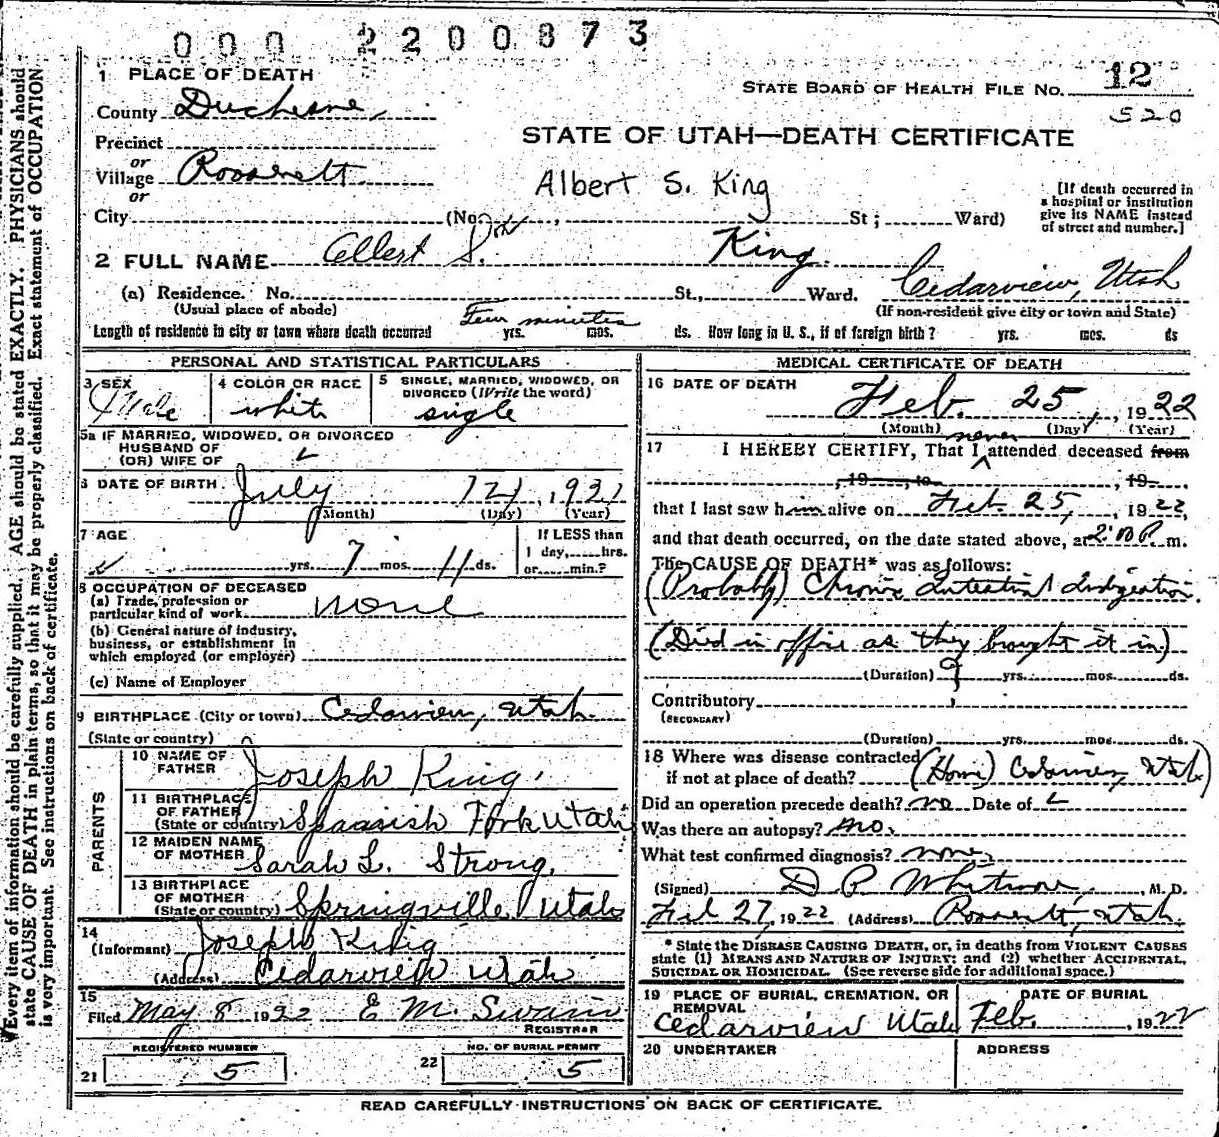 000 2200873
1 PLACE OF DEATH
STATE BOARD OF HEALTH FILE NO. 12
County Duchesne,
520
STATE OF UTAH—DEATH CERTIFICATE
Precinct
or
Village Roosevelt
Albert S. King
[If death occurred in a hospital or institution give its NAME instead of street and number.]
or
City (No. , St; Ward)
2 FULL NAME Albert S. King
(a) Residence. No. St., Ward. Cedarview, Utah
(Usual place of abode) (If non-resident give city or town and State)
Length of residence in city or town where death occurred Few minutes yrs. mos. ds. How long in U. S., if of foreign birth? yrs. mos. ds
PERSONAL AND STATISTICAL PARTICULARS
3 SEX Male
4 COLOR OR RACE white
5 SINGLE, MARRIED, WIDOWED, OR DIVORCED (Write the word) single
5a IF MARRIED, WIDOWED, OR DIVORCED
HUSBAND OF
(OR) WIFE OF
6 DATE OF BIRTH July 1921
(Month) (Day) (Year)
7 AGE yrs. 7 mos. 11 ds.
If LESS than
1 day, hrs.
or min.?
8 OCCUPATION OF DECEASED
(a) Trade, profession or
particular kind of work none
(b) General nature of industry,
business, or establishment in
which employed (or employer)
(c) Name of Employer
9 BIRTHPLACE (City or town) Cedarview, Utah.
(State or country)
PARENTS
10 NAME OF FATHER Joseph King,
11 BIRTHPLACE OF FATHER (State or country) Spanish Fork Utah
12 MAIDEN NAME OF MOTHER Sarah L. Strong,
13 BIRTHPLACE OF MOTHER (State or country) Springville Utah
14
(Informant) Joseph King
(Address) Cedarview Utah
15
Filed May 8 1922 E M. Swain
REGISTRAR
REGISTERED NUMBER
21 5
NO. OF BURIAL PERMIT
22 5
MEDICAL CERTIFICATE OF DEATH
16 DATE OF DEATH
Feb. 25, 1922
(Month) (Day) (Year)
17 I HEREBY CERTIFY, That I never attended deceased from
, 19 , to , 19
that I last saw him alive on Feb 25, 1922,
and that death occurred, on the date stated above, at m.
The CAUSE OF DEATH* was as follows:
(Probably) Chronic Intestinal Indigestion.
(Died in office as they brought it in)
(Duration) ? yrs. mos. ds.
Contributory
(SECONDARY)
(Duration) yrs. mos. ds.
18 Where was disease contracted
if not at place of death? (Home) Cedarview, Utah)
Did an operation precede death? no Date of
Was there an autopsy? no.
What test confirmed diagnosis? none
(Signed) D P Whitmore, M. D.
Feb 27, 1922 (Address) Roosevelt, Utah.
* State the DISEASE CAUSING DEATH, or, in deaths from VIOLENT CAUSES
state (1) MEANS AND NATURE OF INJURY; and (2) whether ACCIDENTAL,
SUICIDAL OR HOMICIDAL. (See reverse side for additional space.)
19 PLACE OF BURIAL, CREMATION, OR REMOVAL
Cedarview Utah
DATE OF BURIAL
Feb. , 1922
20 UNDERTAKER
ADDRESS
READ CAREFULLY INSTRUCTIONS ON BACK OF CERTIFICATE.
Every item of information should be carefully supplied. AGE should be stated EXACTLY. PHYSICIANS should
state CAUSE OF DEATH in plain terms, so that it may be properly classified. Exact statement of OCCUPATION
is very important. See instructions on back of certificate.